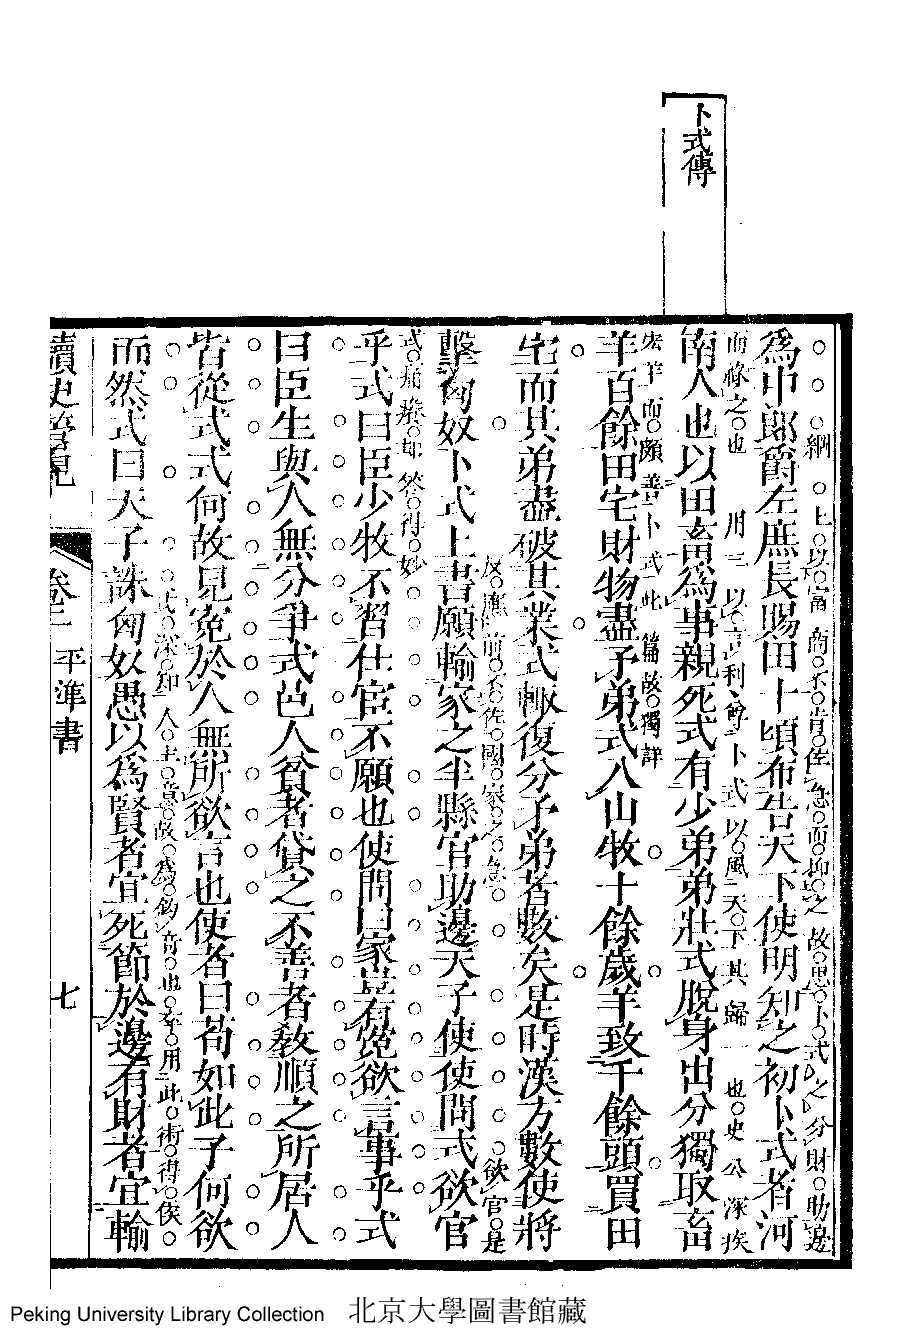 卜式傳
綱 上以富商不肯佐急而抑之故思卜式之分財助邊
爲中郎爵左庶長賜田十頃布告天下使明知之初卜式者河
而祿之也 用三 以言利尊卜式以風天下其歸一也史公深疾
南人也以田畜爲事親死式有少弟弟壯式脫身出分獨取畜
宏羊而頗善卜式此篇故獨詳
羊百餘田宅財物盡予弟式入山牧十餘歲羊致千餘頭買田
宅而其弟盡破其業式輒復分予弟者數矣是時漢方數使將
反應前不佐國家之急 欲官是
擊匈奴卜式上書願輸家之半縣官助邊天子使使問式欲官
式 却 答得妙
乎式曰臣少牧不習仕宦不願也使問曰家豈有冤欲言事乎式
曰臣生與人無分爭式邑人貧者貸之不善者教順之所居人
皆從式式何故見冤於人無所欲言也使者曰苟如此子何欲
式深知人主意故爲 奇也卒用此術得侯
而然式曰天子誅匈奴愚以爲賢者宜死節於邊有財者宜輸
讀史管見 卷二 平準書 七
Peking University Library Collection 北京大學圖書館藏